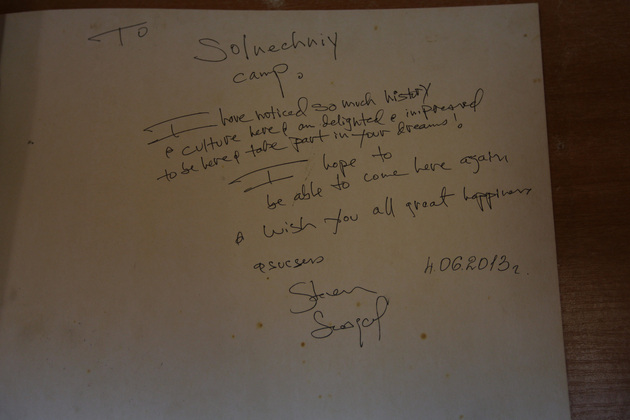 To
Solnechniy
camp.
I have noticed so much history
& culture here & am delighted & impressed
to be here & take part in your dreams!
I hope to
be able to come here again
& wish you all great happiness
& sucsess
4.06.2013г.
Steven
Seagal